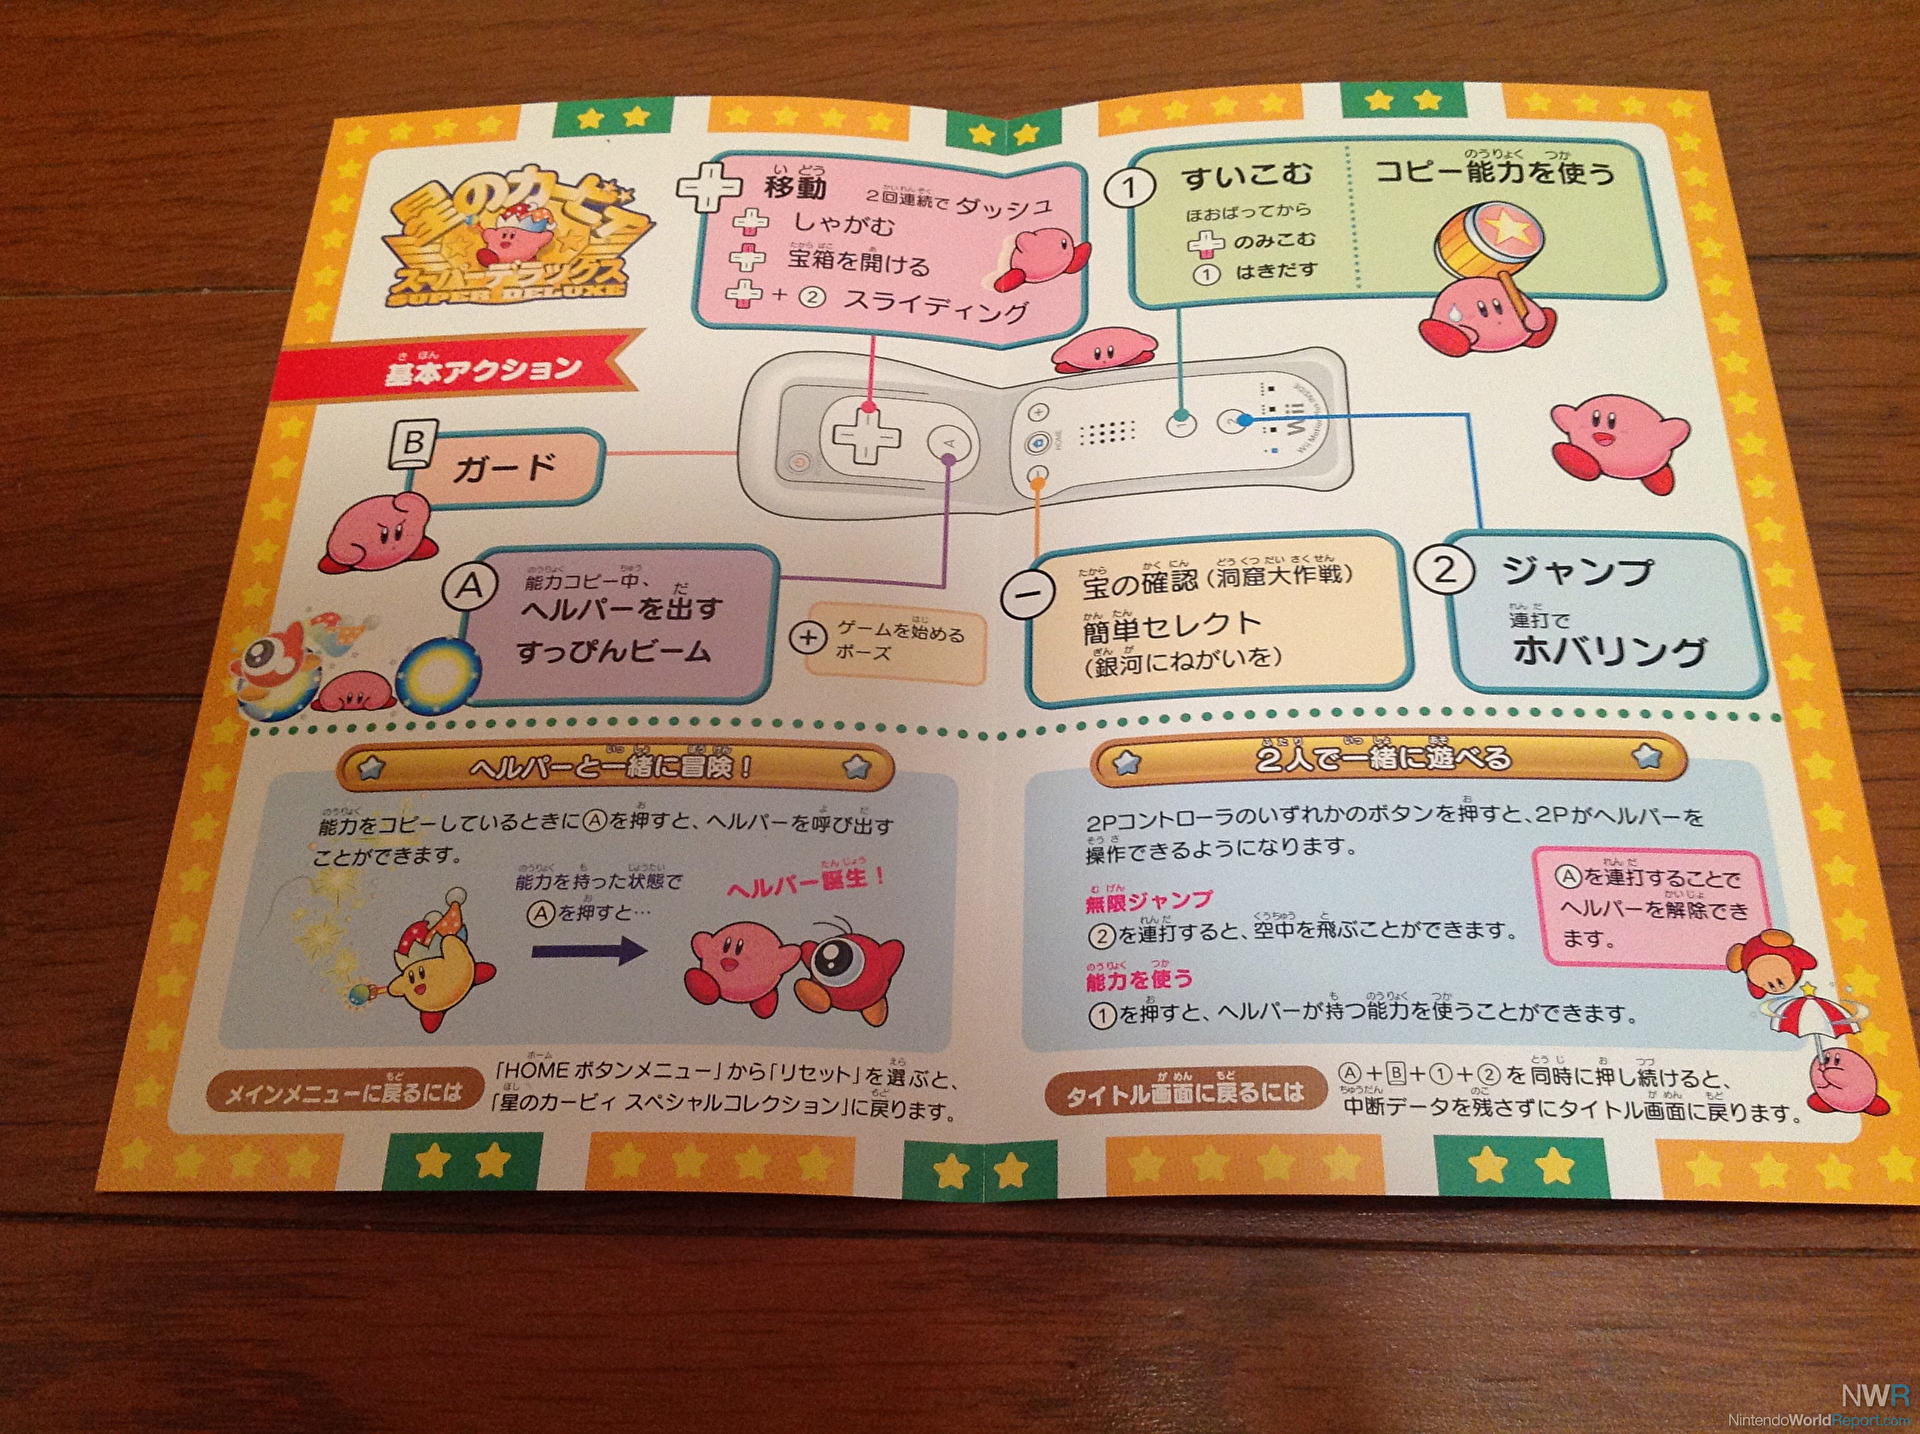 星のカービィ
スーパーデラックス
SUPER DELUXE
移動 2回連続で ダッシュ
しゃがむ
宝箱を開ける
+ ② スライディング
① すいこむ
ほおばってから
のみこむ
① はきだす
コピー能力を使う
基本アクション
B ガード
A 能力コピー中、
ヘルパーを出す
すっぴんビーム
+ ゲームを始める
ポーズ
− 宝の確認(洞窟大作戦)
簡単セレクト
(銀河にねがいを)
② ジャンプ
連打で
ホバリング
A
HOME
1
2
Wii
ヘルパーと一緒に冒険!
能力をコピーしているときにⒶを押すと、ヘルパーを呼び出す
ことができます。
能力を持った状態で
Ⓐを押すと…
ヘルパー誕生!
2人で一緒に遊べる
2Pコントローラのいずれかのボタンを押すと、2Pがヘルパーを
操作できるようになります。
無限ジャンプ
②を連打すると、空中を飛ぶことができます。
能力を使う
①を押すと、ヘルパーが持つ能力を使うことができます。
Ⓐを連打することで
ヘルパーを解除でき
ます。
メインメニューに戻るには
「HOME ボタンメニュー」から「リセット」を選ぶと、
「星のカービィ スペシャルコレクション」に戻ります。
タイトル画面に戻るには
Ⓐ+B+①+②を同時に押し続けると、
中断データを残さずにタイトル画面に戻ります。
NWR
NintendoWorldReport.com